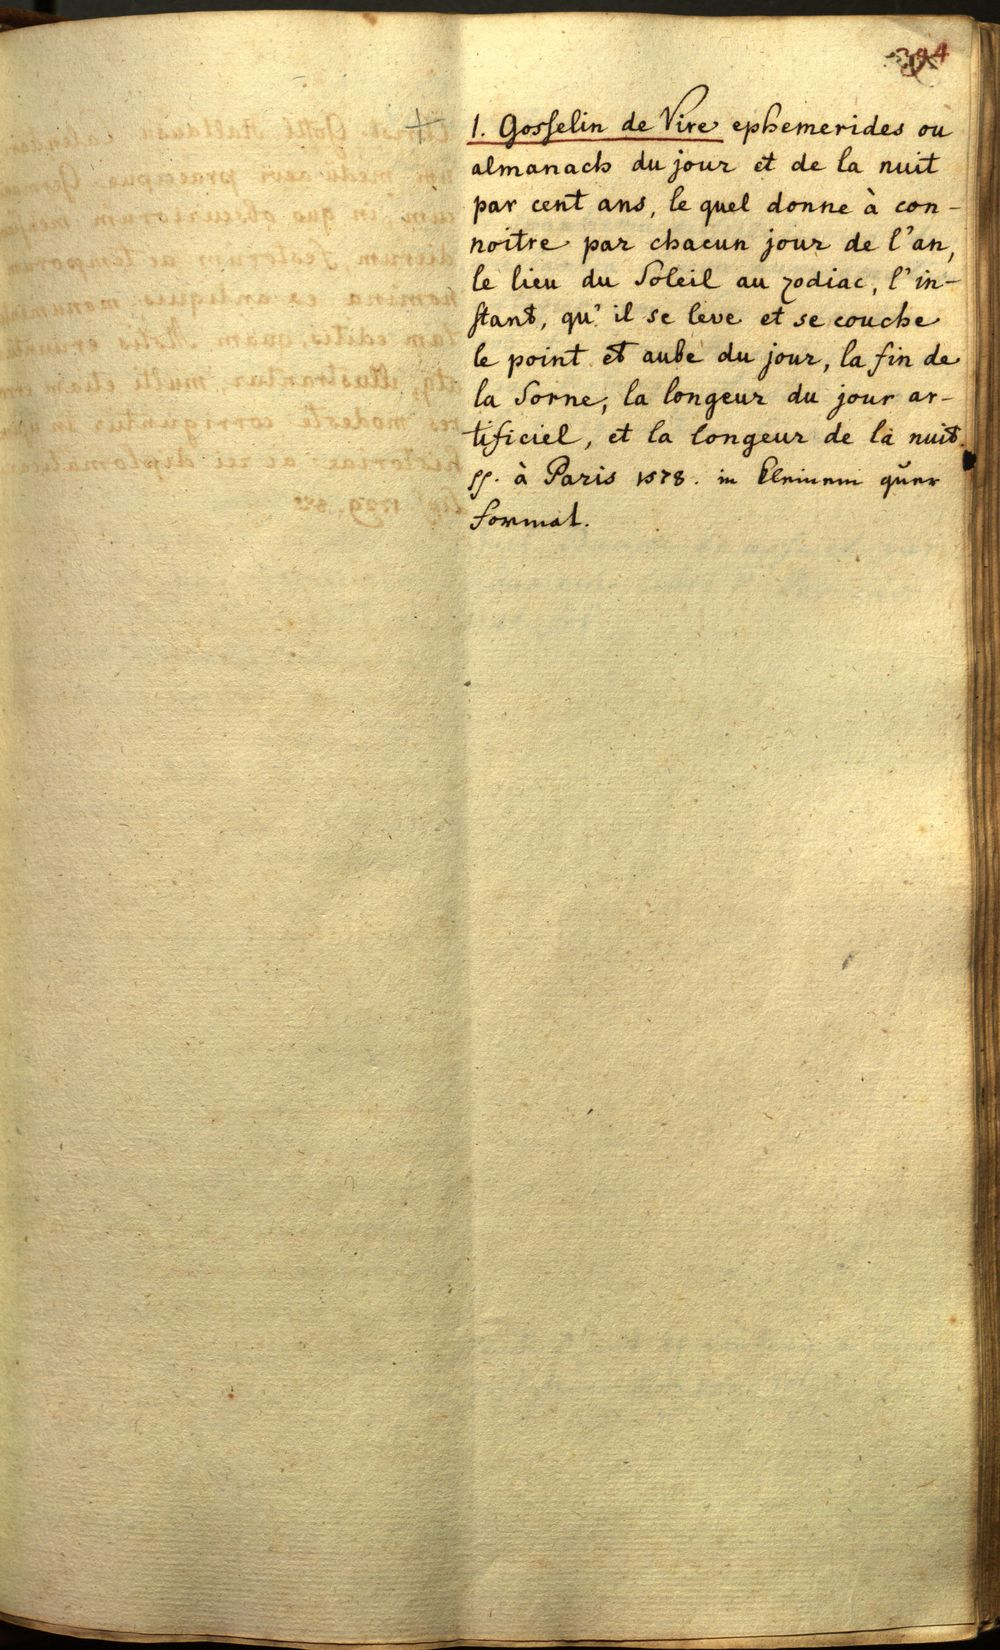 394
+ 1. Gosselin de Vire ephemerides ou
almanach du jour et de la nuit
par cent ans, le quel donne à con-
noitre par chacun jour de l'an,
le lieu du Soleil au zodiac, l'in-
stant, qu'il se leve et se couche
le point et aube du jour, la fin de
la Sorne, la longeur du jour ar-
tificiel, et la longeur de la nuit
pp. à Paris 1578. in kleinem quer
format.